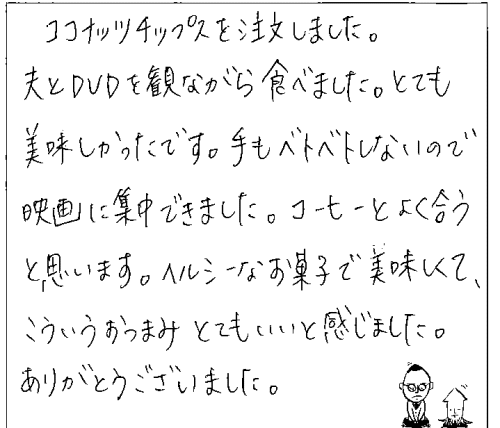 ココナッツチップスを注文しました。
夫とDVDを観ながら食べました。とても
美味しかったです。手もベトベトしないので
映画に集中できました。コーヒーとよく合う
と思います。ヘルシーなお菓子で美味しくて、
こういうおつまみとてもいいと感じました。
ありがとうございました。